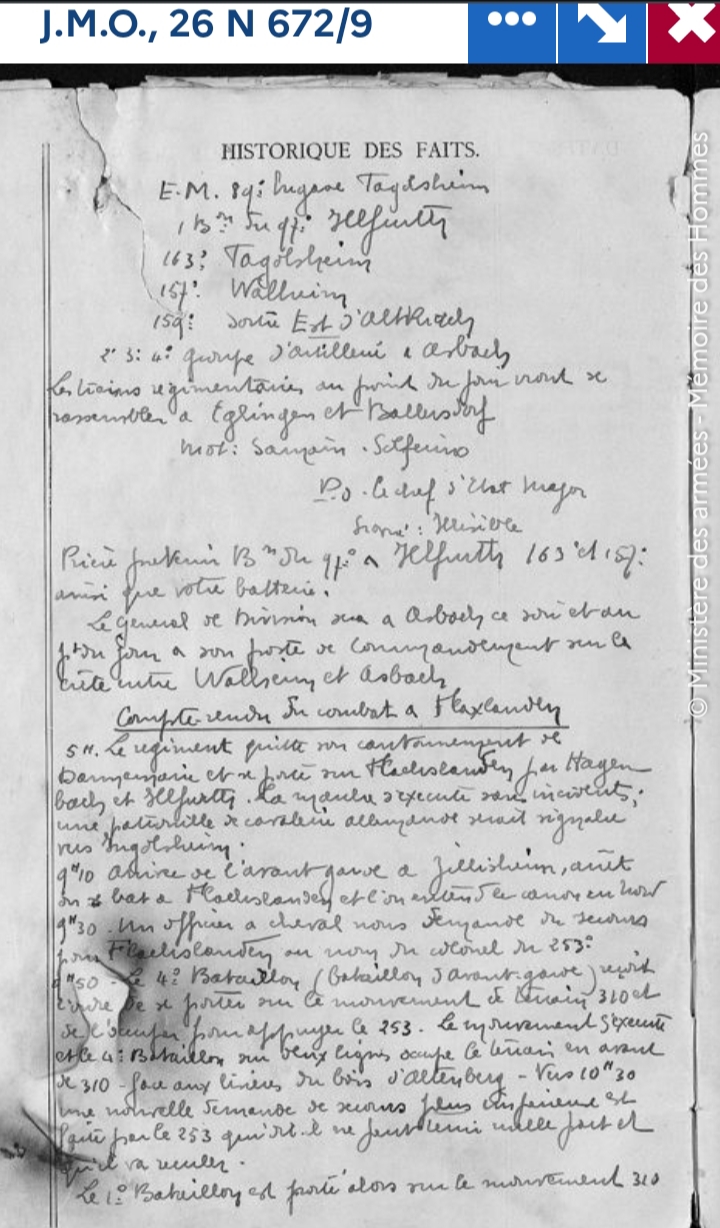 J.M.O., 26 N 672/9
HISTORIQUE DES FAITS.
E.M. 89e brigade Tagolsheim
1 Bon du 97e Illfurth
163e Tagolsheim
157e Walheim
159e sortie Est d'Altkirch
2e 3e 4e groupe d'artillerie à Asbach
Les trains régimentaires au point du jour iront se
rassembler à Eglingen et Ballersdorf
Mot : Solferino
P.O. le chef d'Etat Major
Signé : Illisible
Prière prévenir Bon du 97e à Illfurth 163e et 157e
ainsi que votre batterie.
Le général de Division sera à Asbach ce soir et au
pt du jour à son poste de commandement sur la
crête entre Walheim et Asbach
Compte-rendu du combat à Flaxlanden
5H. Le régiment quitte son cantonnement de
Dannemarie et se porte sur Flachslanden par Hagen
bach et Illfurth. La marche s'exécute sans incidents ;
une patrouille de cavalerie allemande serait signalée
vers
9H10 arrivée de l'avant garde à Zillisheim, arrêt
on se bat à Flachslanden et l'on entend le canon au Nord
9H30. Un officier à cheval nous demande du secours
pour Flachslanden au nom du colonel du 253e
9H50 - Le 4e Bataillon (bataillon d'avant-garde) reçoit
l'ordre de se porter sur le mouvement de terrain 310 et
de l'occuper pour appuyer le 253. Le mouvement s'exécute
et le 4e Bataillon sur deux lignes occupe le terrain en avant
de 310 - face aux lisières du bois d'Altenberg - Vers 10H30
une nouvelle demande de secours plus impérieuse est
faite par le 253 qui dit il ne peut tenir nulle part et
qu'il va reculer.
Le 1er Bataillon est porté alors sur le mouvement 310
© Ministère des armées - Mémoire des Hommes